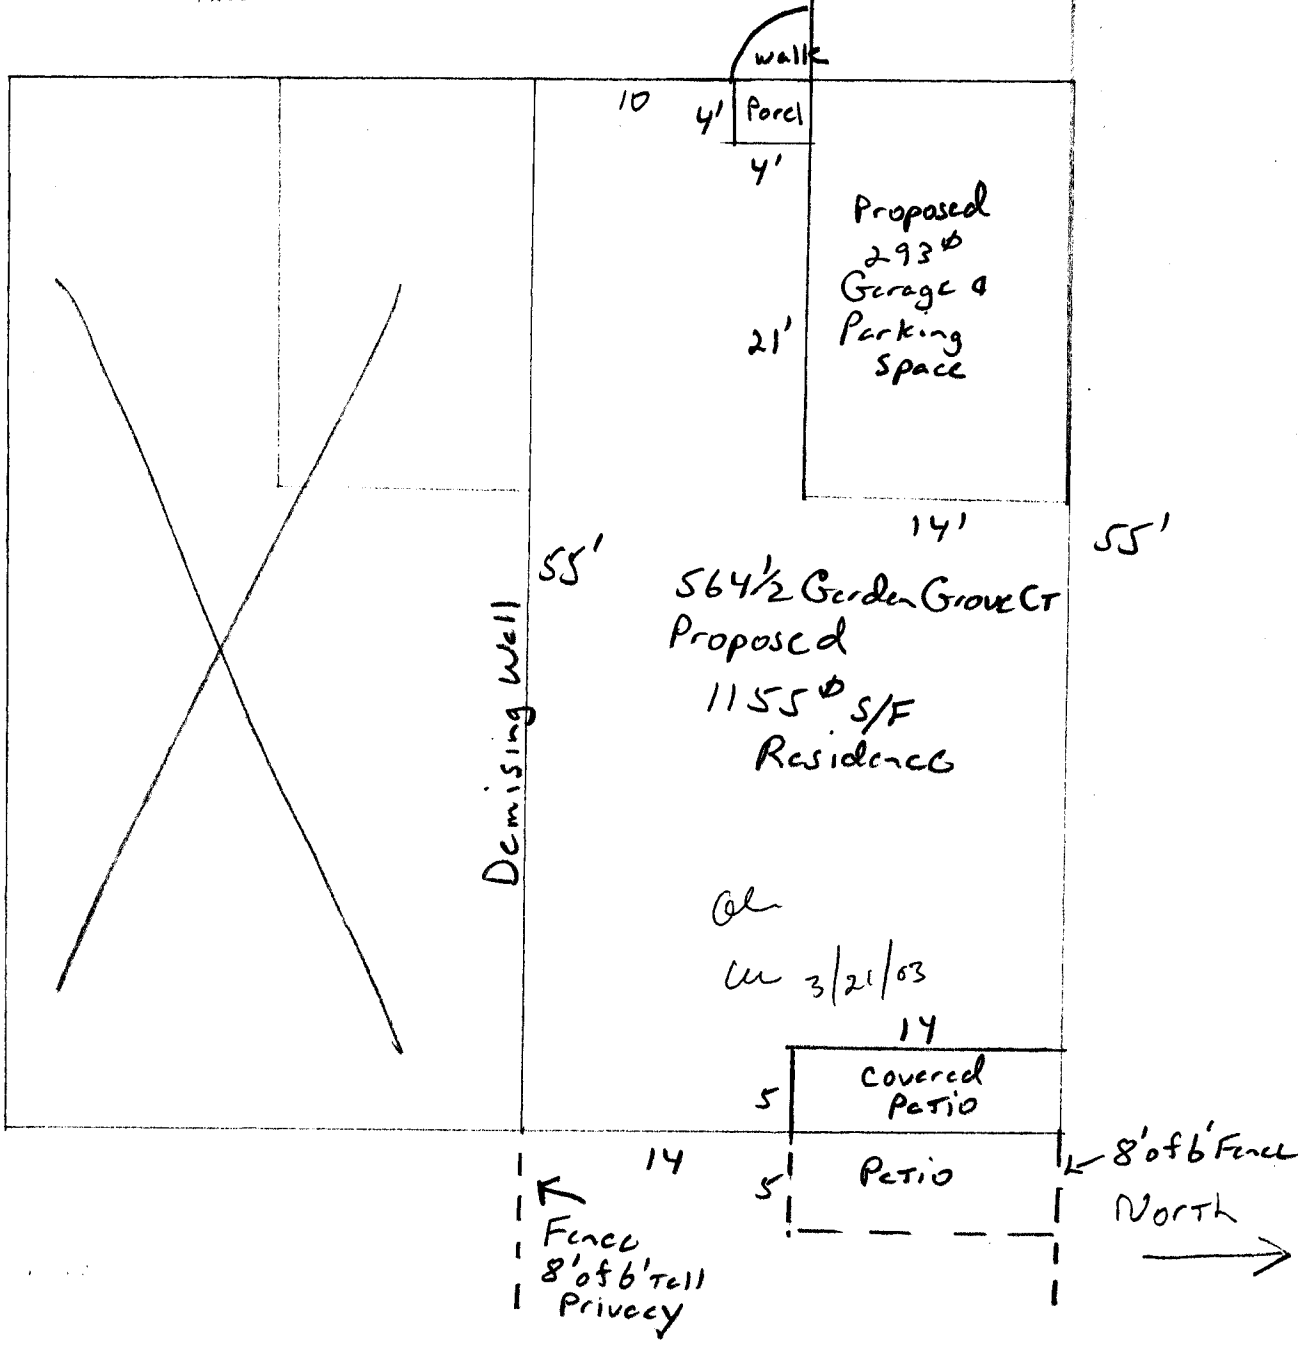 walk
10
4'
Porch
4'
Proposed
293 ⌀
Garage &
Parking
Space
21'
14'
55'
55'
564 1/2 Garden Grove CT
Proposed
1155 ⌀ S/F
Residence
Demising Wall
3/21/03
14
Covered
Patio
5
14
5
Patio
8' of 6' Fence
North
Fence
8' of 6' Tall
Privacy